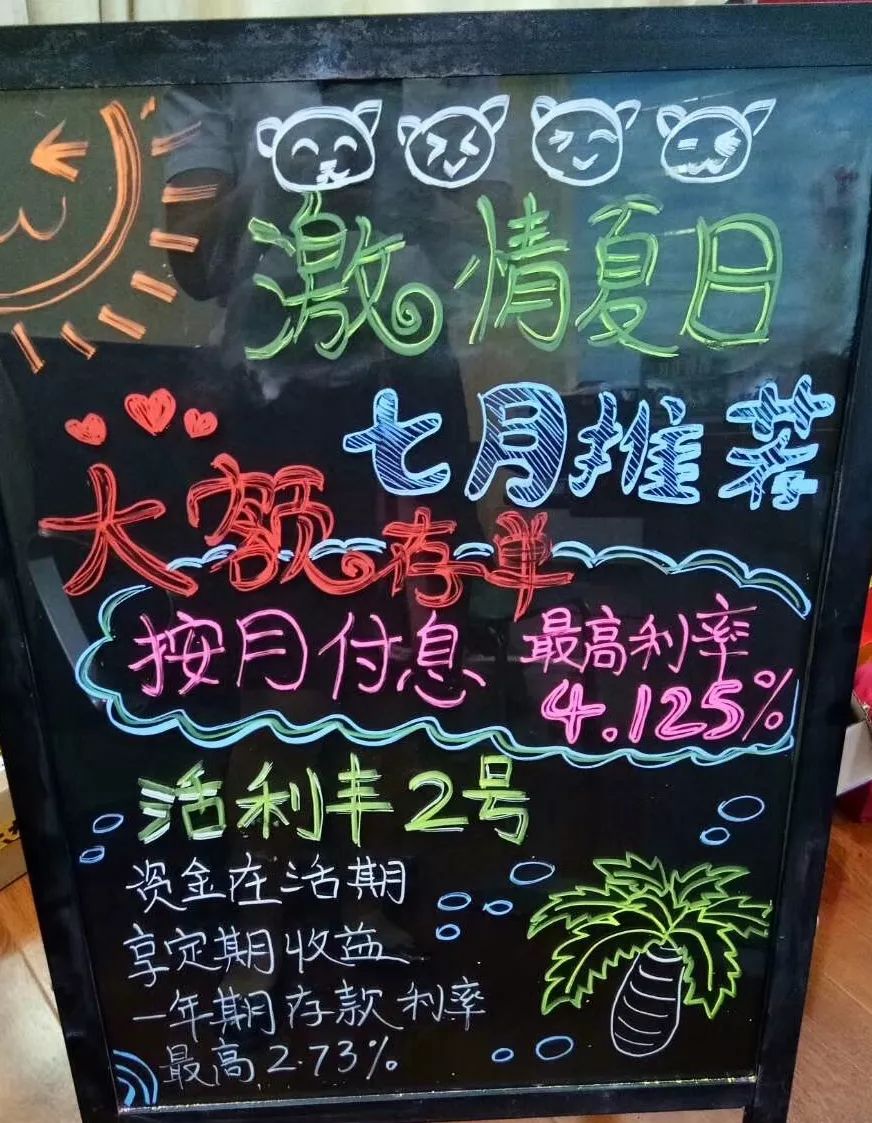 激情夏日
七月推荐
大额存单
按月付息 最高利率
4.125%
活利丰2号
资金在活期
享定期收益
一年期存款利率
最高2.73%